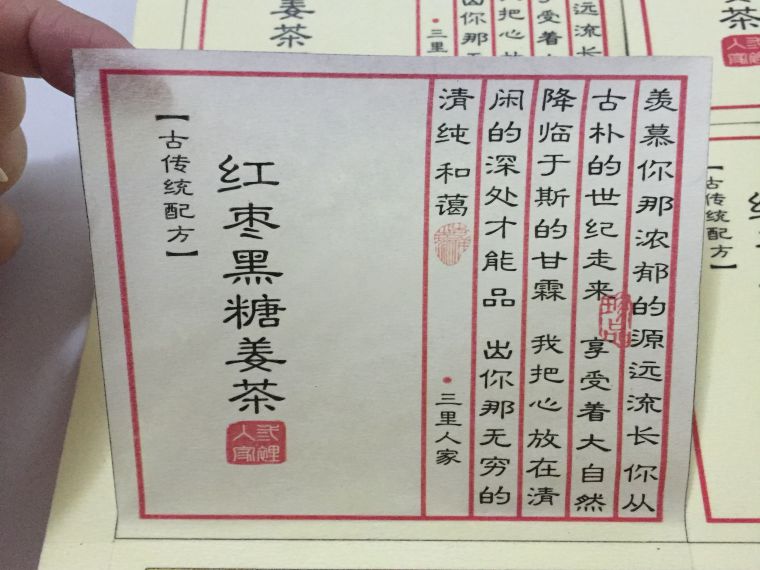 羡慕你那浓郁的源远流长 你从
古朴的世纪走来 享受着大自然
降临于斯的甘霖 我把心放在清
闲的深处才能品 出你那无穷的
清纯和蔼
·三里人家
珍品
红枣黑糖姜茶
【古传统配方】
姜茶
·三里
出你那无
我把心放
享受着大
远流长
姜茶
【古传统配方】